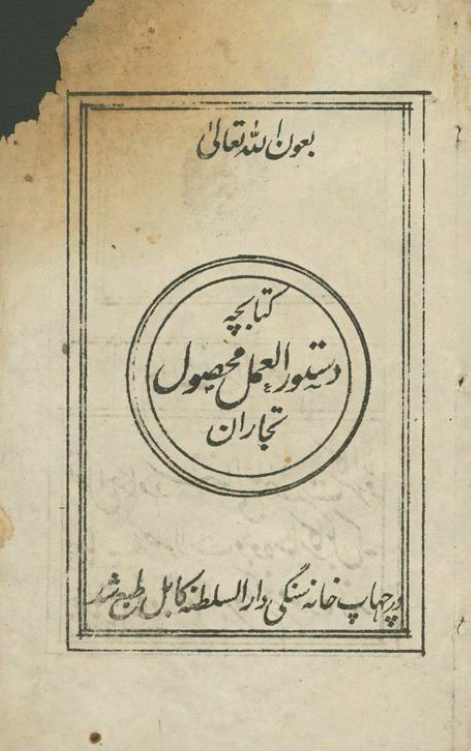 بعون الله تعالیٰ
کتابچه
دستورالعمل محصول
تجاران
در چهاپ خانه سنگی دارالسلطنه کابل طبع شد